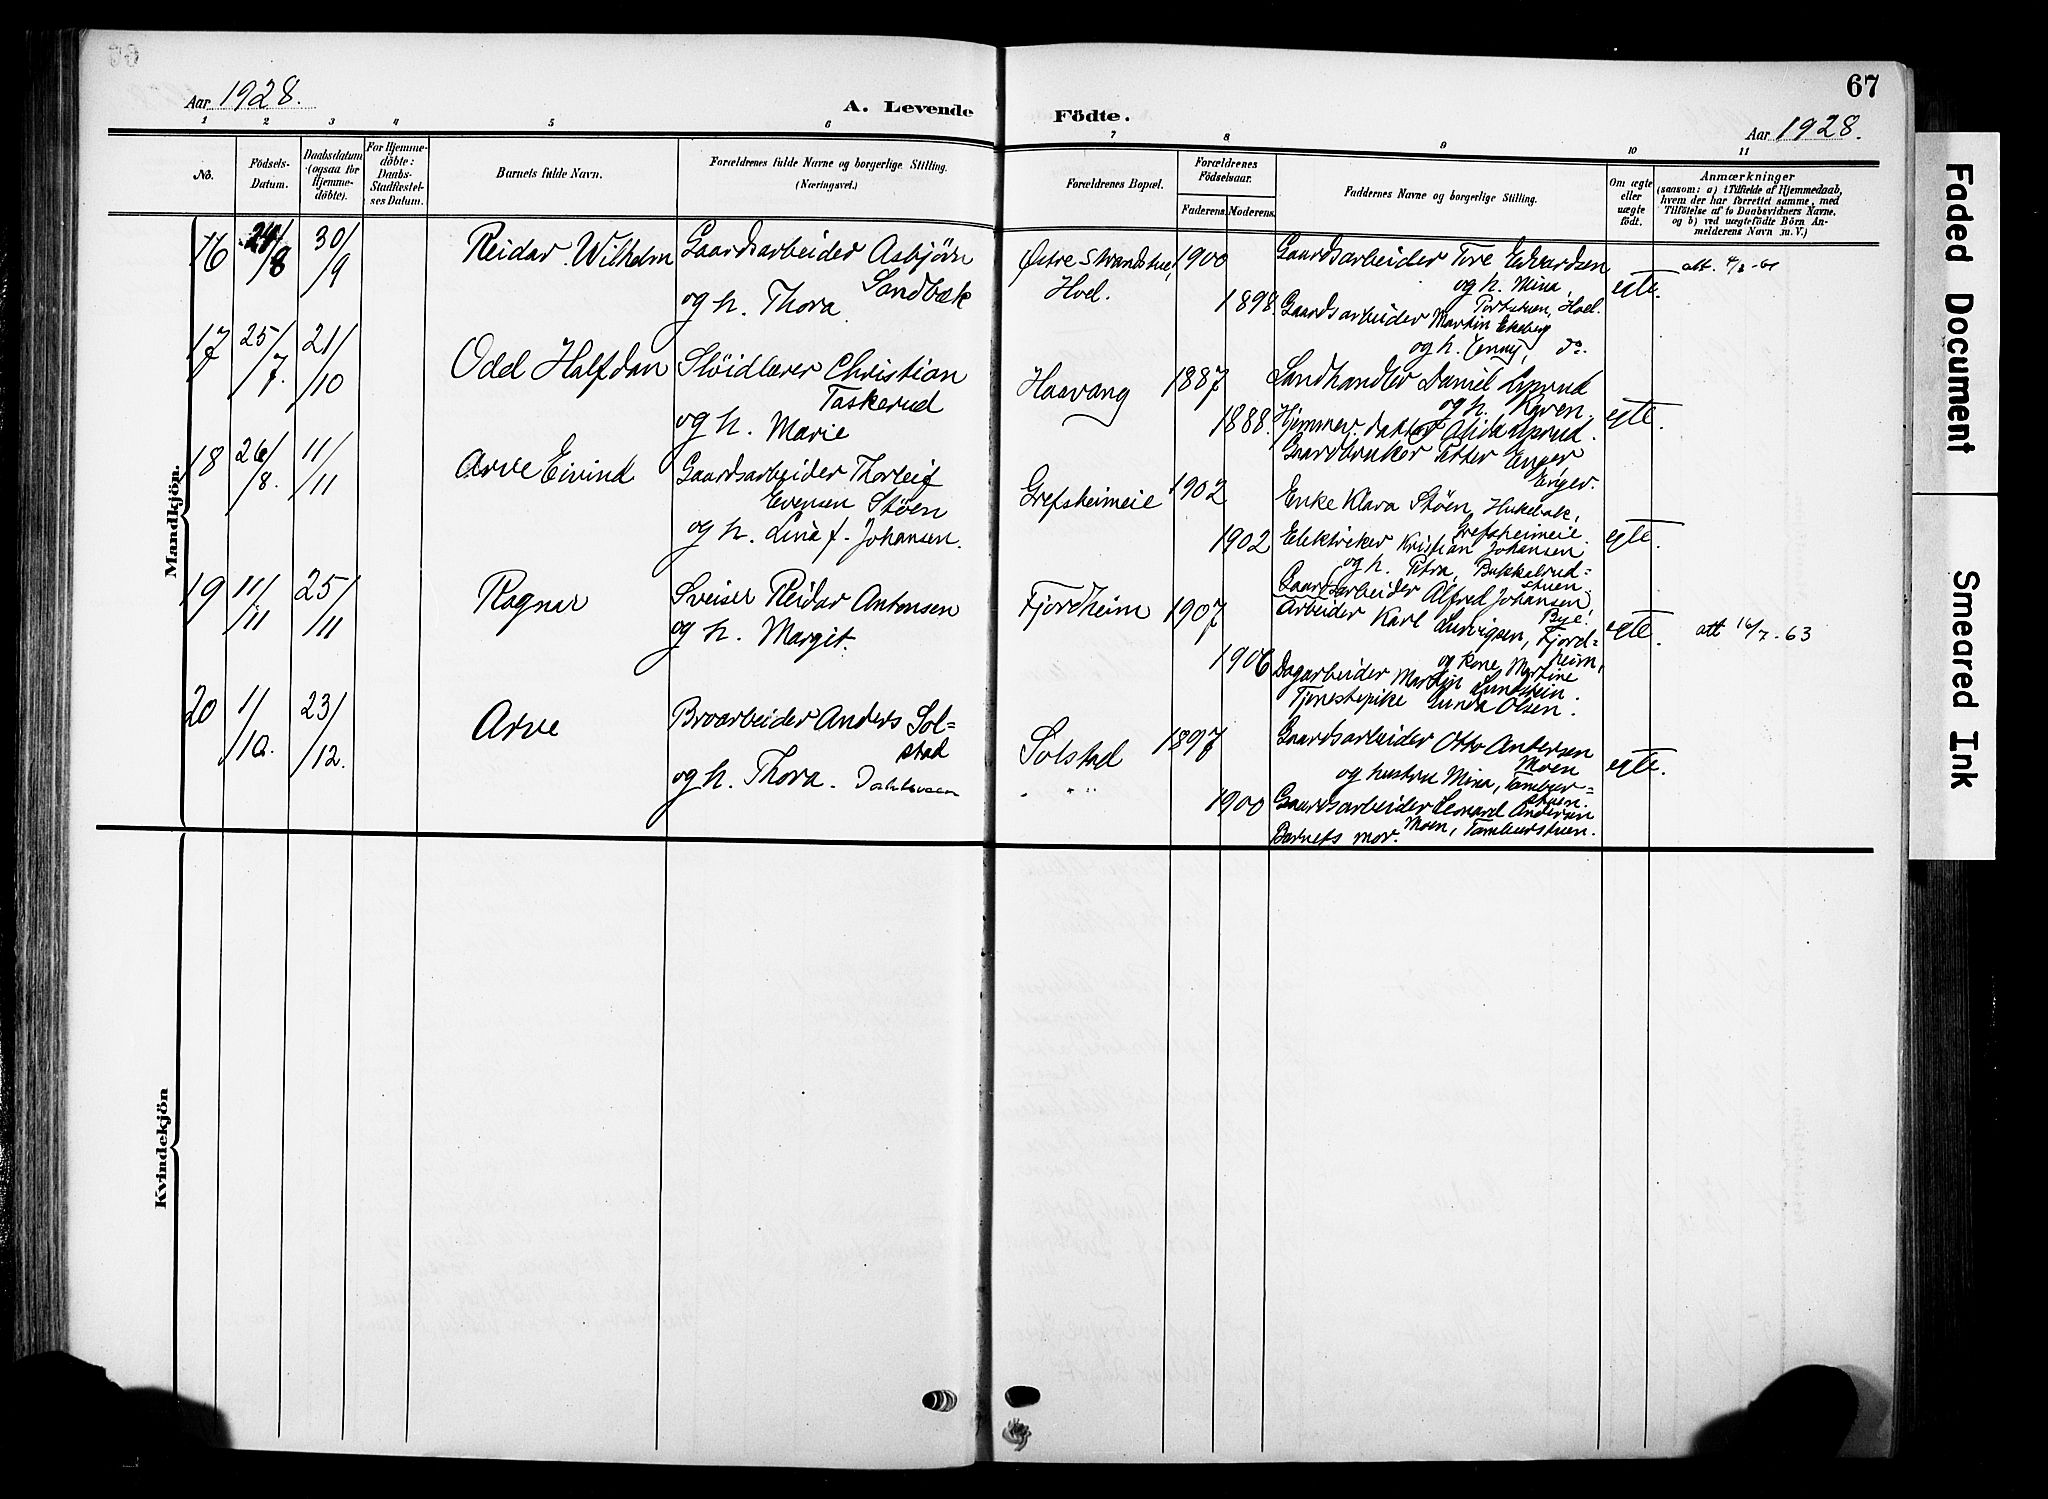 67
Aar 1928.
A. Levende Födte.
Aar 1928.
1 2 3 4 5 6 7 8 9 10 11
No.
Födsels-Datum.
Daabsdatum (ogsaa for Hjemme-döbte).
For Hjemme-döbte: Daabs-Stadfæstel-ses Datum.
Barnets fulde Navn.
Forældrenes fulde Navne og borgerlige Stilling.
(Næringsvei.)
Forældrenes Bopæl.
Forældrenes Födselsaar.
Faderens. Moderens.
Faddernes Navne og borgerlige Stilling.
Om ægte eller uægte födt.
Anmærkninger
(saasom: a) i Tilfælde af Hjemmedaab,
hvem der har forrettet samme, med
Tilföielse af to Daabsvidners Navne,
og b) ved uægtefödte Börn An-
melderens Navn m. V.)
Mandkjön.
16 24/8 30/9 Reidar Wilhelm
Gaardsarbeider Asbjørn
Sandbæk
og h. Thora
Østre Strandstue,
Hoel.
1900
1898
Gaardsarbeider Tore Edvardsen
og h. Mina,
Hoel.
Gaardsarbeider Martin Ekeberg
og h. Jenny, do.
egte.
att.
17 25/7. 21/10 Odd Halfdan
Sløidlærer Christian
Taskerud
og h. Marie
Haavang
1887
1888.
Landhandler Daniel Lyprud
og h. Karen.
Gaardbruker Petter Enger
Enger.
egte.
18 26/8. 11/11 Arve Eivind
Gaardsarbeider Thorleif
Evensen Støen
og h. Lina f. Johansen.
Grefsheimeie
1902
1902
Enke Klara Støen,
Grefsheimeie.
Elektriker Kristian Johansen
og h. Petra, Bakkelrud=
stuen.
Gaardsarbeider Alfred Johansen,
Bye.
egte.
19 11/11 25/11 Ragnar
Sveiser Reidar Antonsen
og h. Margit.
Fjordheim
1907
1906
Arbeider Karl Ludvigsen, Fjord=
heim,
og kone Martine
Dagarbeider Martin Lundstein.
Tjenestepike Gunda Olsen.
egte.
att 16/7-63
20 1/10. 23/12. Arve
Broarbeider Anders Sol=
stad
og h. Thora.
Solstad
" "
1897
1900
Gaardsarbeider Otto Andersen
Moen
og hustru Mina, Tambur=
stuen.
Gaardsarbeider Leonard Andersen
Moen, Tamburstuen.
Barnets mor.
egte.
Kvindekjön
Faded Document
Smeared Ink